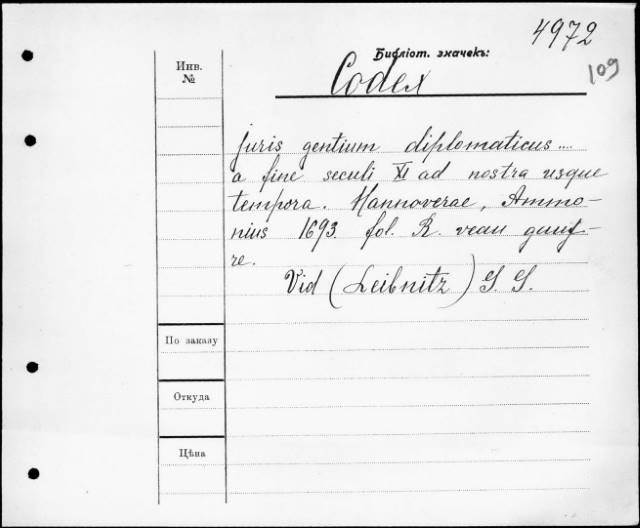 4972
Библіот. значекъ:
109
Инв.
№
Codex
juris gentium diplomaticus....
a fine seculi XI ad nostra usque
tempora. Hannoverae, Ammo-
nius 1693. fol. R. veau gauf-
re.
Vid (Leibnitz) G. G.
По заказу
Откуда
Цѣна